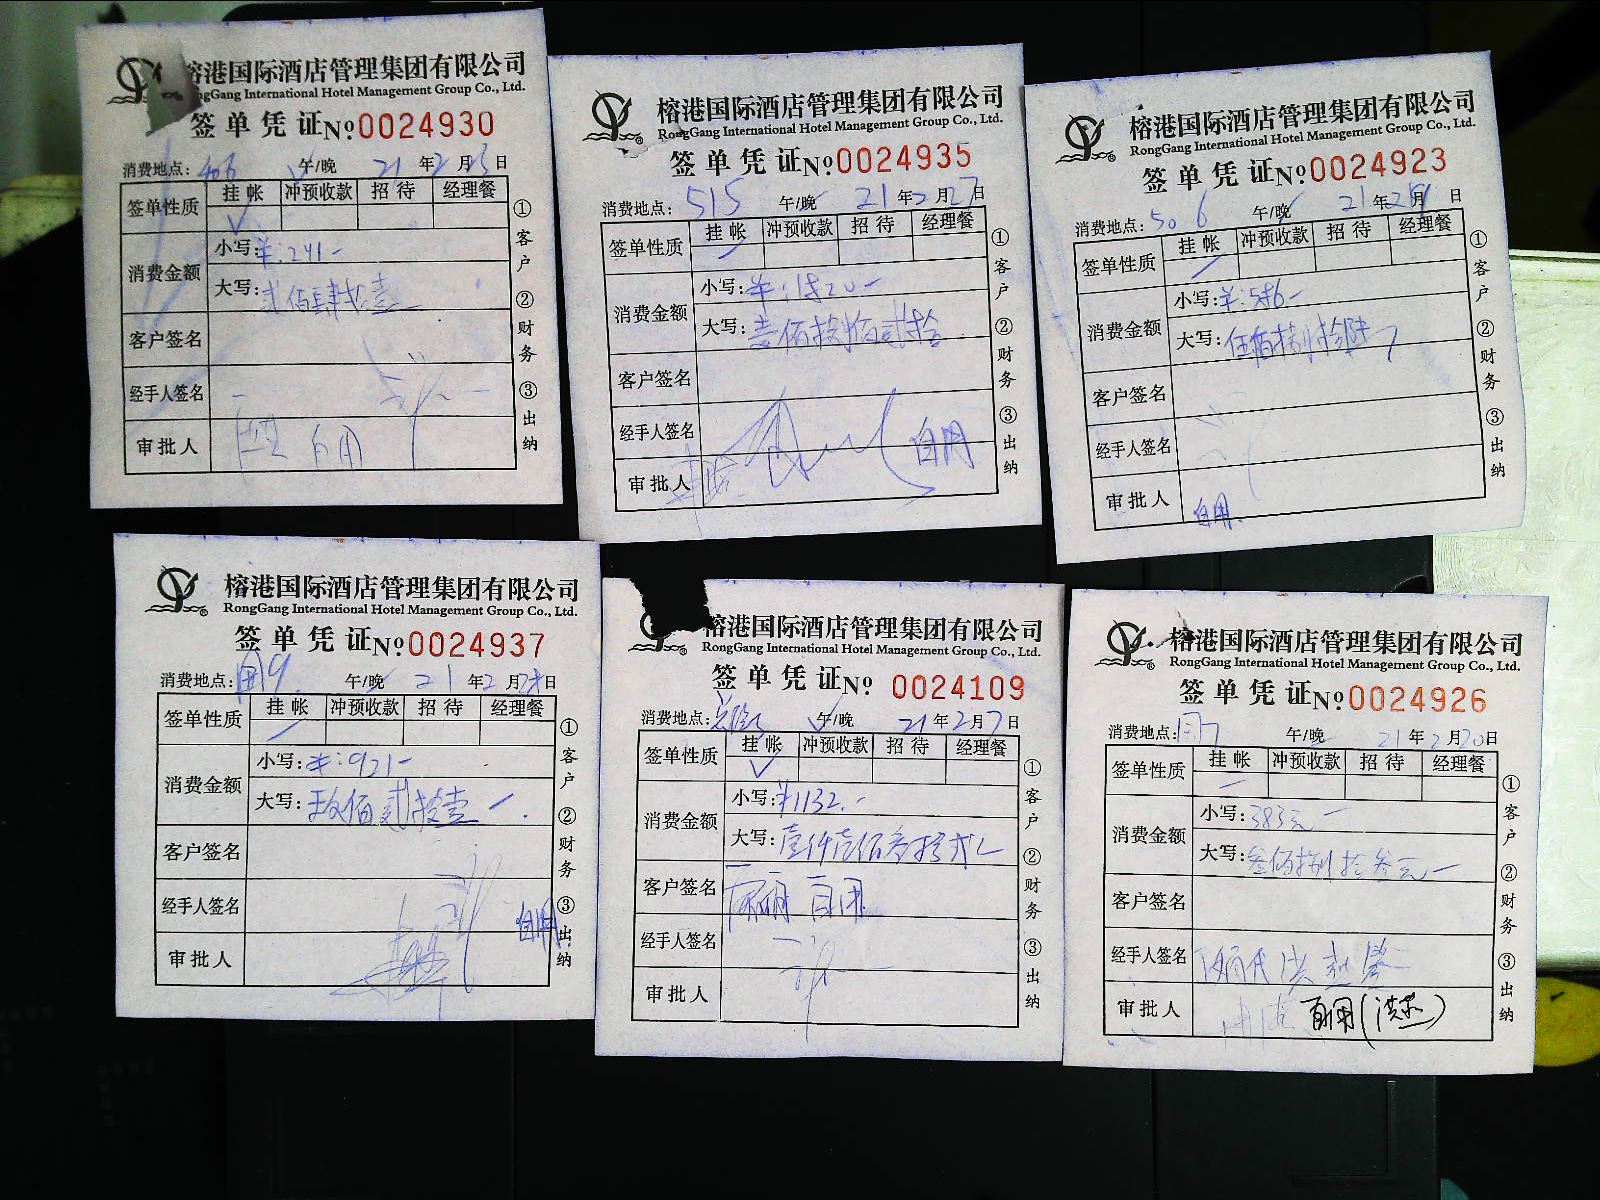 榕港国际酒店管理集团有限公司
RongGang International Hotel Management Group Co., Ltd.
签单凭证 №0024930
消费地点: 午/晚 21年2月 日
签单性质 挂帐 冲预收款 招待 经理餐
消费金额 小写:¥:241-
大写:贰佰肆拾壹
客户签名
经手人签名
审批人 自用
①客户 ②财务 ③出纳
榕港国际酒店管理集团有限公司
RongGang International Hotel Management Group Co., Ltd.
签单凭证 №0024935
消费地点: 515 午/晚 21年2月27日
签单性质 挂帐 冲预收款 招待 经理餐
消费金额 小写:
大写:
客户签名
经手人签名 自用
审批人
①客户 ②财务 ③出纳
榕港国际酒店管理集团有限公司
RongGang International Hotel Management Group Co., Ltd.
签单凭证 №0024923
消费地点: 506 午/晚 21年2月 日
签单性质 挂帐 冲预收款 招待 经理餐
消费金额 小写:¥:586-
大写:伍佰捌拾陆
客户签名
经手人签名
审批人 自用
①客户 ②财务 ③出纳
榕港国际酒店管理集团有限公司
RongGang International Hotel Management Group Co., Ltd.
签单凭证 №0024937
消费地点: 午/晚 21年2月 日
签单性质 挂帐 冲预收款 招待 经理餐
消费金额 小写:¥:921-
大写:玖佰贰拾壹
客户签名
经手人签名 自用
审批人
①客户 ②财务 ③出纳
榕港国际酒店管理集团有限公司
RongGang International Hotel Management Group Co., Ltd.
签单凭证 № 0024109
消费地点: 午/晚 21年2月7日
签单性质 挂帐 冲预收款 招待 经理餐
消费金额 小写:¥1132.-
大写:壹仟壹佰叁拾贰
客户签名 自用
经手人签名
审批人
①客户 ②财务 ③出纳
榕港国际酒店管理集团有限公司
RongGang International Hotel Management Group Co., Ltd.
签单凭证 №0024926
消费地点: 午/晚 21年2月20日
签单性质 挂帐 冲预收款 招待 经理餐
消费金额 小写:383元-
大写:叁佰捌拾叁元
客户签名
经手人签名
审批人 自用
①客户 ②财务 ③出纳